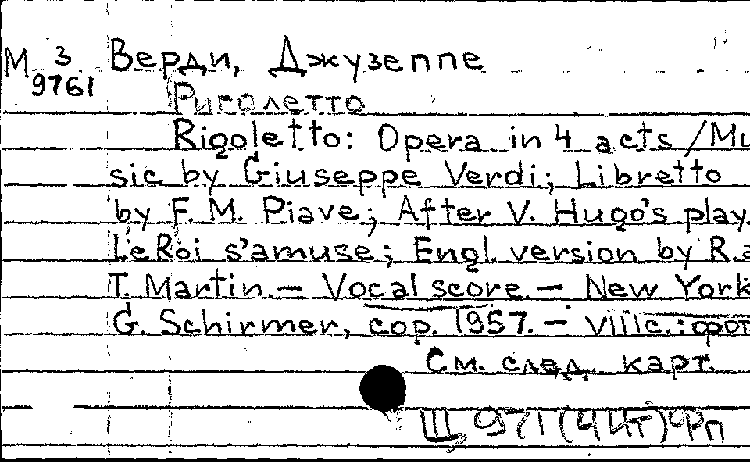 М 3 Верди, Джузеппе
9761
Риголетто
Rigoletto: Opera in 4 acts /Mu
sic by Giuseppe Verdi; Libretto
by F. M. Piave; After V. Hugo's play.
Le Roi s'amuse; Engl. version by R. a
T. Martin. — Vocal score. — New York
G. Schirmer, cop. 1957. — VIII c. : фот
См. след. карт.
Щ 971(4Ит)Фп